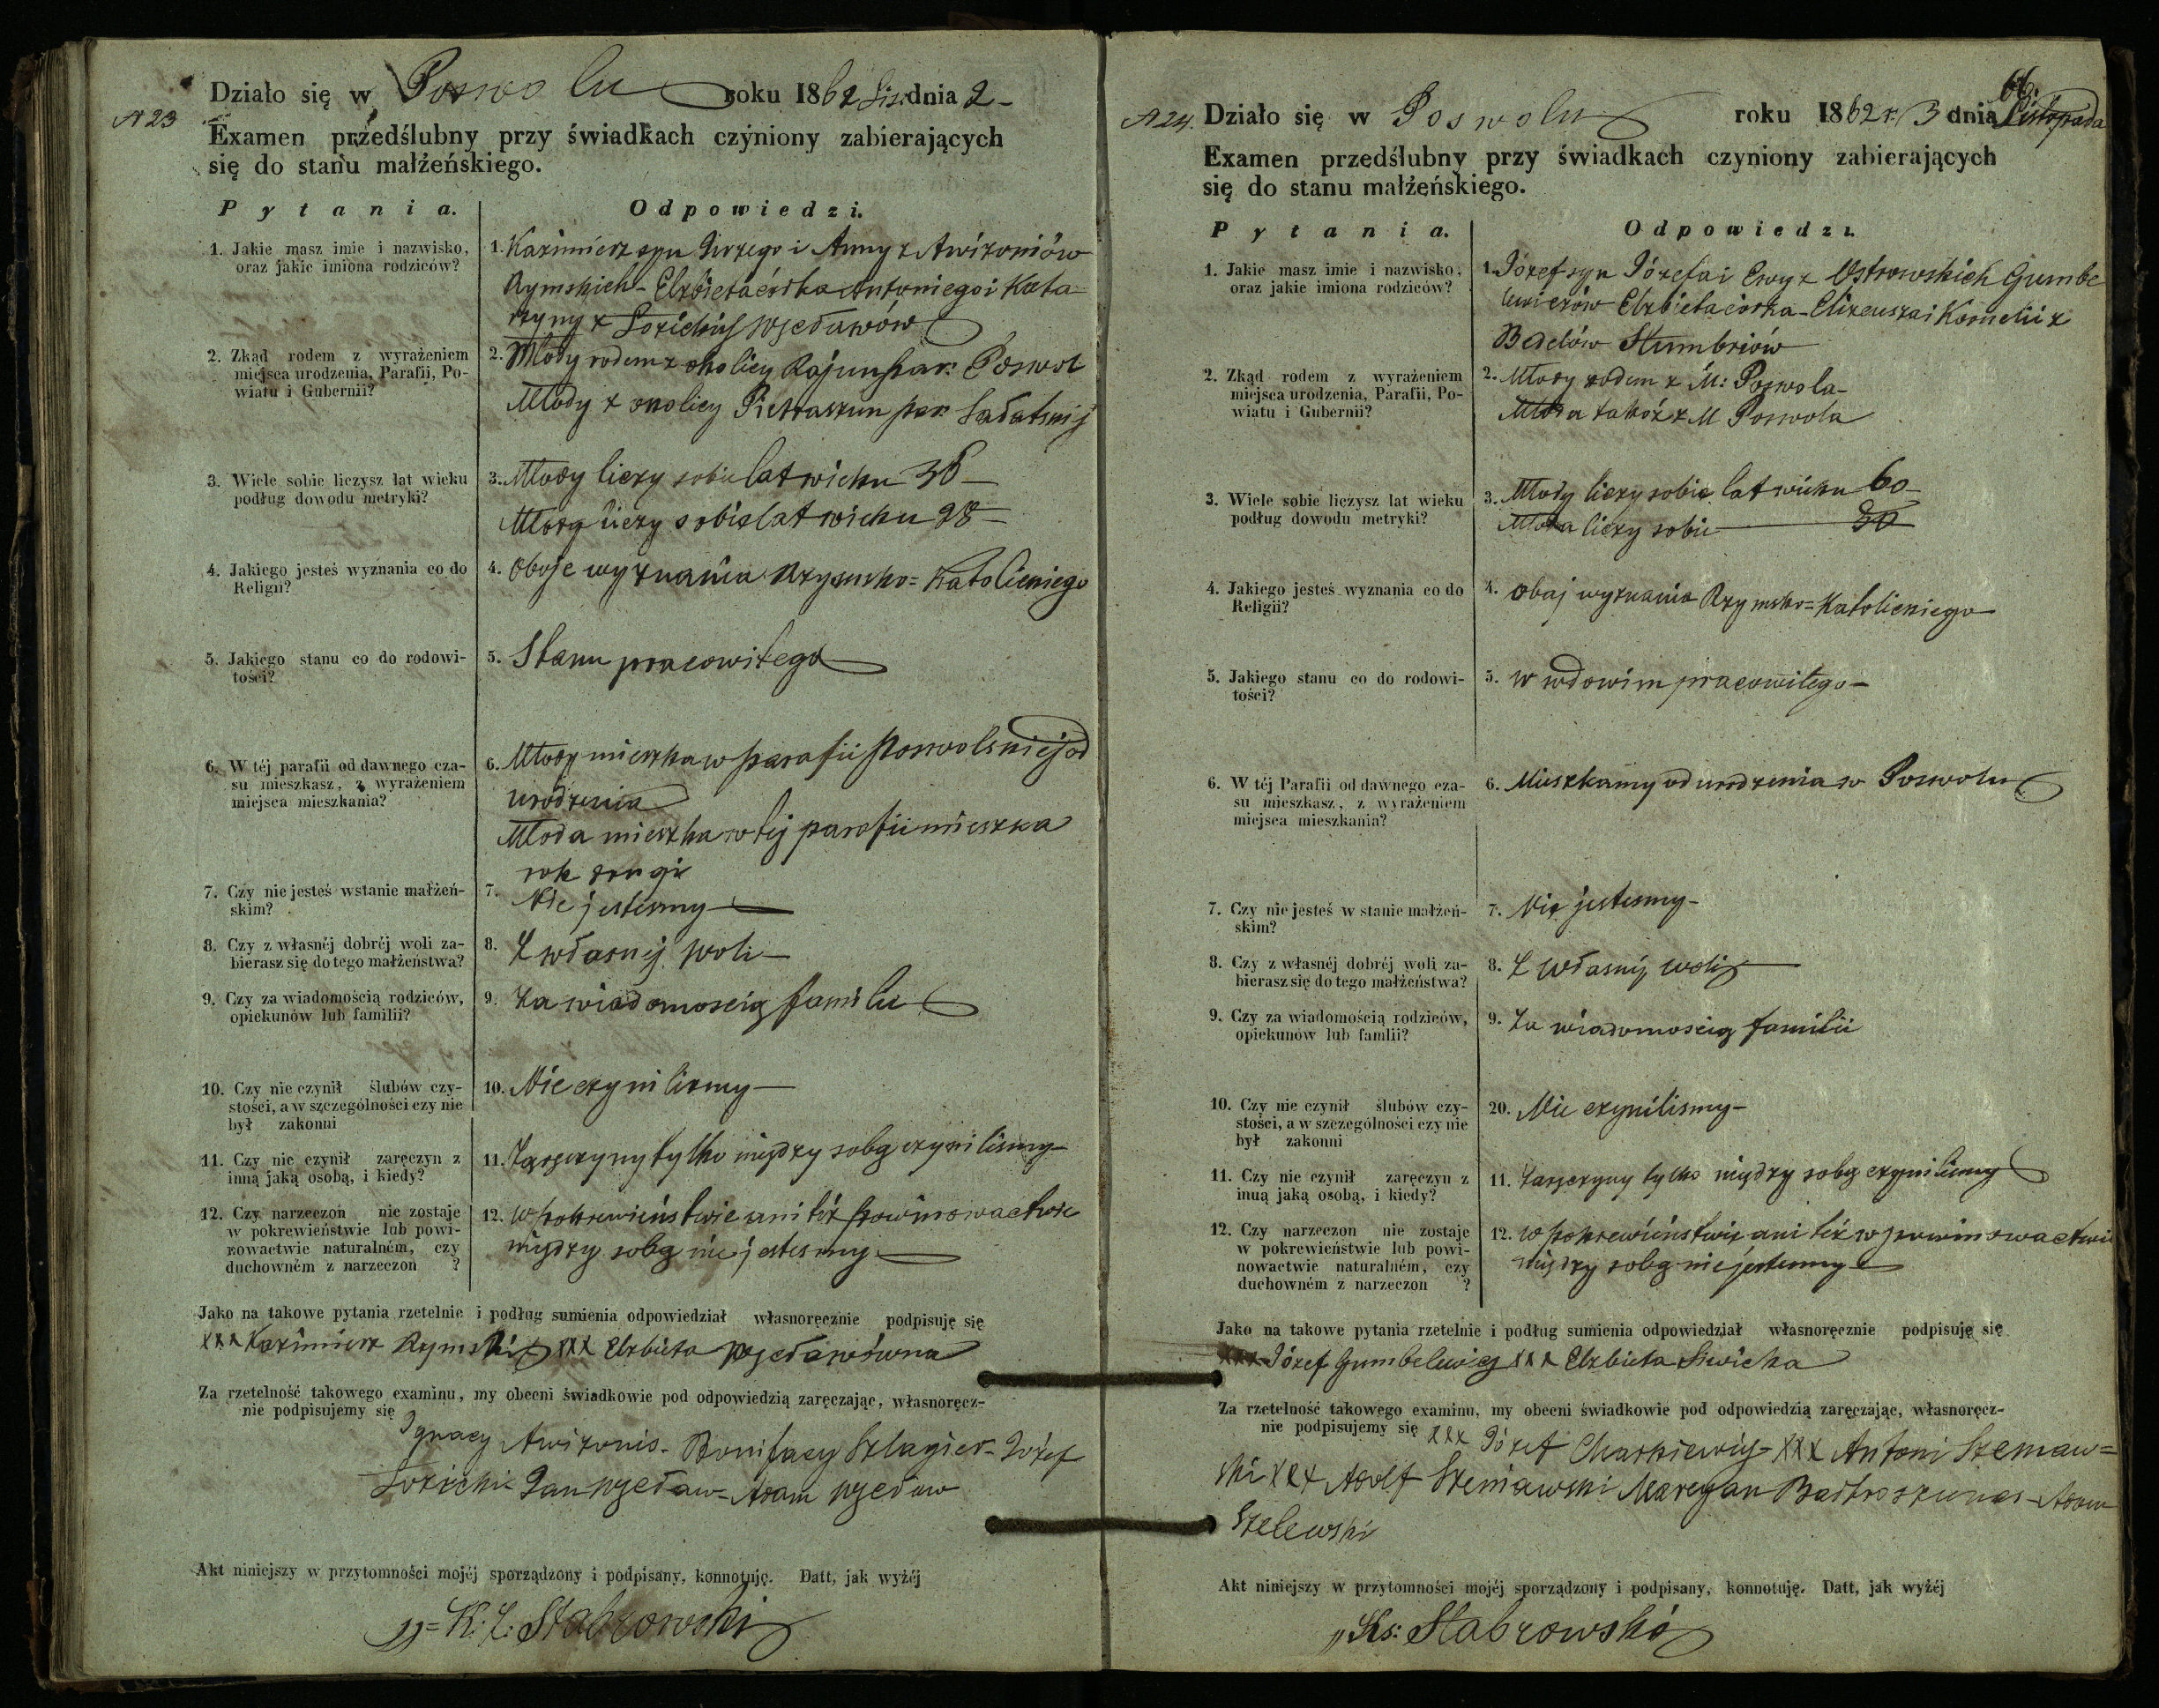 Działo się w Poswolu roku 1862 Lis. dnia 2
N 23
Examen przedślubny przy świadkach czyniony zabierających
się do stanu małżeńskiego.
Pytania. Odpowiedzi.
1. Jakie masz imie i nazwisko,
oraz jakie imiona rodziców?
1. Kazimierz syn Jerzego i Anny z Awizoniów
Rymskich - Elzbieta córka Antoniego i Kata=
rzyny z Łozickich
2. Zkąd rodem z wyrażeniem
miejsca urodzenia, Parafii, Po-
wiatu i Gubernii?
2. Młody rodem z okolicy Rajun par: Poswol
Młody z okolicy par
3. Wiele sobie liczysz lat wieku
podług dowodu metryki?
3. Młody liczy sobie lat wieku 36
Młoda liczy sobie lat wieku 28
4. Jakiego jesteś wyznania co do
Religii?
4. Oboje wyznania Rzymsko=Katolickiego
5. Jakiego stanu co do rodowi-
tości?
5. Stanu pracowitego
6. W téj parafii od dawnego cza-
su mieszkasz, z wyrażeniem
miejsca mieszkania?
6. Młody mieszka w parafii poswolskiej od
urodzenia
Młoda mieszka w tej parafii mieszka
rok drugi
7. Czy nie jesteś wstanie małżeń-
skim?
7. Nie jestesmy
8. Czy z własnéj dobréj woli za-
bierasz się do tego małżeństwa?
8. Z własnej woli
9. Czy za wiadomością rodziców,
opiekunów lub familii?
9. Za wiadomoscią familii
10. Czy nie czynił ślubów czy-
stości, a w szczególności czy nie
był zakonni
10. Nie czynilismy
11. Czy nie czynił zaręczyn z
inną jaką osobą, i kiedy?
11. Zaręczyny tylko między sobą czynilismy
12. Czy narzeczon nie zostaje
w pokrewieństwie lub powi-
nowactwie naturalném, czy
duchowném z narzeczon ?
12. w pokrewieństwie ani też powinowactwie
między sobą nie jestesmy
Jako na takowe pytania rzetelnie i podług sumienia odpowiedział własnoręcznie podpisuję się
xxx Kazimierz Rymski xxx Elzbieta
Za rzetelność takowego examinu, my obecni świadkowie pod odpowiedzią zaręczając, własnoręcz-
nie podpisujemy się
Ignacy Awizonis - Bonifacy Szlagier - Józef
Łozicki Jan Adam
Akt niniejszy w przytomności mojéj sporządzony i podpisany, konnotuję. Datt, jak wyżéj
K. Z. Stabrowski
66.
N 24. Działo się w Poswolu roku 1862 r. 3 dnia Listopada
Examen przedślubny przy świadkach czyniony zabierających
się do stanu małżeńskiego.
Pytania. Odpowiedzi.
1. Jakie masz imie i nazwisko,
oraz jakie imiona rodziców?
1. Józef syn Józefa i Ewy z Ostrowskich Gumbe
lewiczów Elzbieta córka - Elizeusza i Kornelii z
Badelów Stumbriów
2. Zkąd rodem z wyrażeniem
miejsca urodzenia, Parafii, Po-
wiatu i Gubernii?
2. Młody rodem z M: Poswola -
Młoda takoż z M Poswola
3. Wiele sobie liczysz lat wieku
podług dowodu metryki?
3. Młody liczy sobie lat wieku 60
Młoda liczy sobie 50
4. Jakiego jesteś wyznania co do
Religii?
4. obaj wyznania Rzymsko=Katolickiego
5. Jakiego stanu co do rodowi-
tości?
5. w wdowim pracowitego
6. W téj Parafii od dawnego cza-
su mieszkasz, z wyrażeniem
miejsca mieszkania?
6. Mieszkamy od urodzenia w Poswolu
7. Czy nie jesteś w stanie małżeń-
skim?
7. Nie jestesmy -
8. Czy z własnéj dobréj woli za-
bierasz się do tego małżeństwa?
8. Z własnéj woli
9. Czy za wiadomością rodziców,
opiekunów lub famlii?
9. Za wiadomoscią familii
10. Czy nie czynił ślubów czy-
stości, a w szczególności czy nie
był zakonni
20. Nie czynilismy -
11. Czy nie czynił zaręczyn z
inuą jaką osobą, i kiedy?
11. Zaręczyny tylko między sobą czynilismy
12. Czy narzeczon nie zostaje
w pokrewieństwie lub powi-
nowactwie naturalném, czy
duchowném z narzeczon ?
12. w pokrewieństwie ani też w powinowactwie
między sobą nie jestesmy
Jako na takowe pytania rzetelnie i podług sumienia odpowiedział własnoręcznie podpisuję się
xxx Józef Gumbelewicz xxx Elzbieta Siwicka
Za rzetelność takowego examinu, my obecni świadkowie pod odpowiedzią zaręczając, własnoręcz-
nie podpisujemy się xxx Józef Charkiewicz - xxx Antoni Szemaw=
ski xxx Adolf Szeniawski Adam
Szelewski
Akt niniejszy w przytomności mojéj sporządzony i podpisany, konnotuję. Datt, jak wyżéj
Ks: Stabrowski